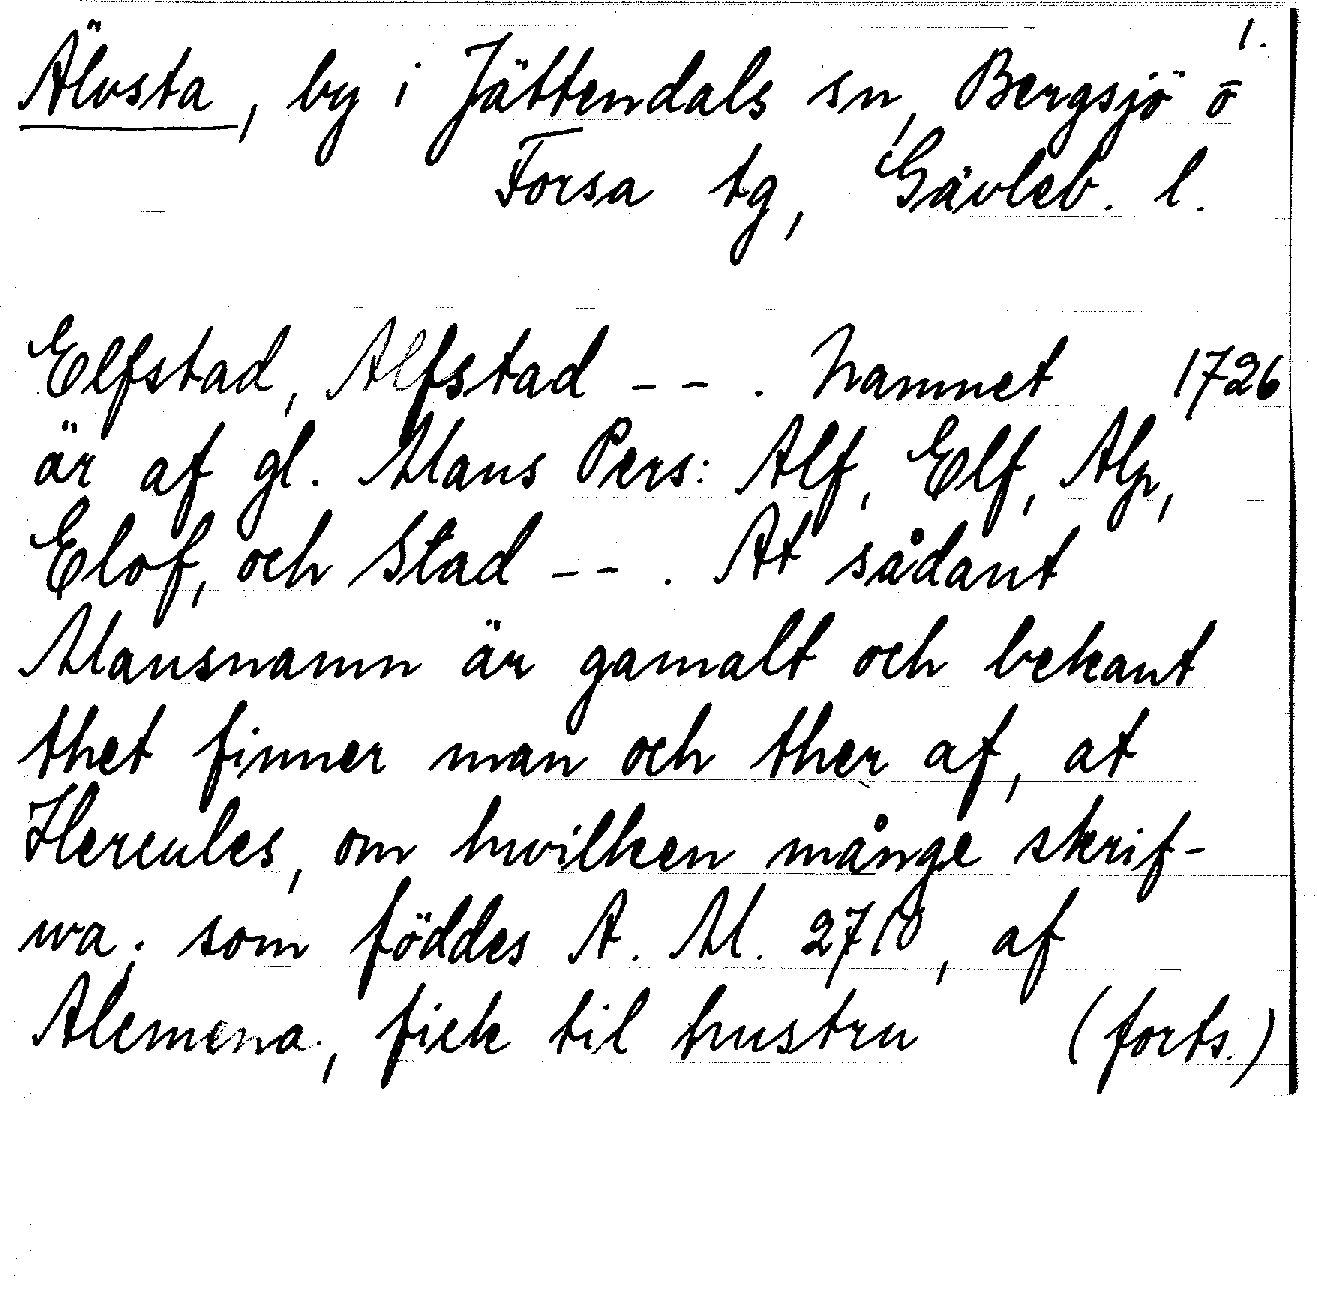 1.
Älvsta, by i Jättendals sn, Bergsjö o
Forsa tg, Gävleb. l.
Elfstad, Alfstad -- . Namnet 1726
är af gl. Mans Pers: Alf, Elf, Alp,
Elof, och Stad -- . At sådant
Mansnamn är gamalt och bekant
thet finner man och ther af, at
Hercules, om hwilken månge skrif-
wa; som föddes A. M. 2710, af
Alcmena, fick til hustru (forts.)